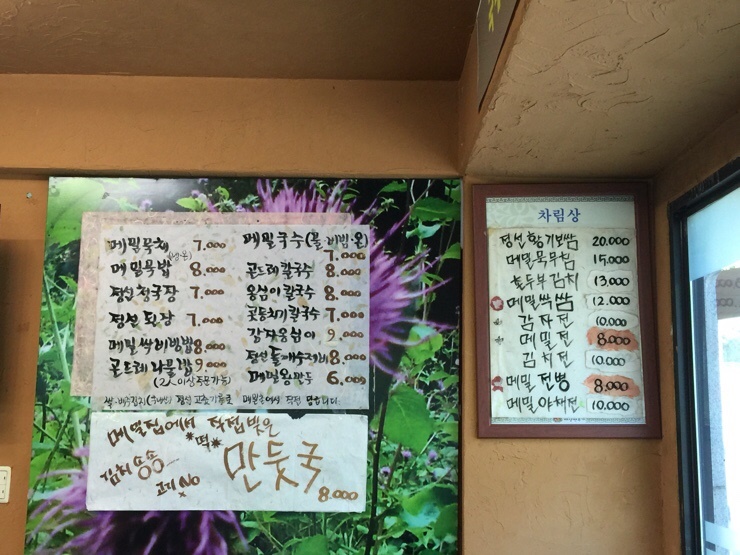 메밀묵채 7.000
(냉·온)
메밀묵밥 8.000
정선청국장 7.000
정선된장 7.000
메밀싹비빔밥 8.000
곤드레나물밥 9.000
(2人이상주문가능)
메밀국수(물·비빔·온)
7.000
곤드레칼국수 8.000
옹심이칼국수 8.000
콧등치기칼국수 7.000
감자옹심이 9.000
정선들깨수제비 8.000
메밀왕만두 6.000
메밀집에서 직접 빚은
*떡*
김치 송송
고기 No
만둣국
8.000
차림상
정선황기보쌈 20.000
메밀묵무침 15.000
두부김치 13.000
메밀싹쌈 12.000
감자전 10.000
메밀전 8.000
김치전 10.000
메밀전병 8.000
메밀야채전 10.000